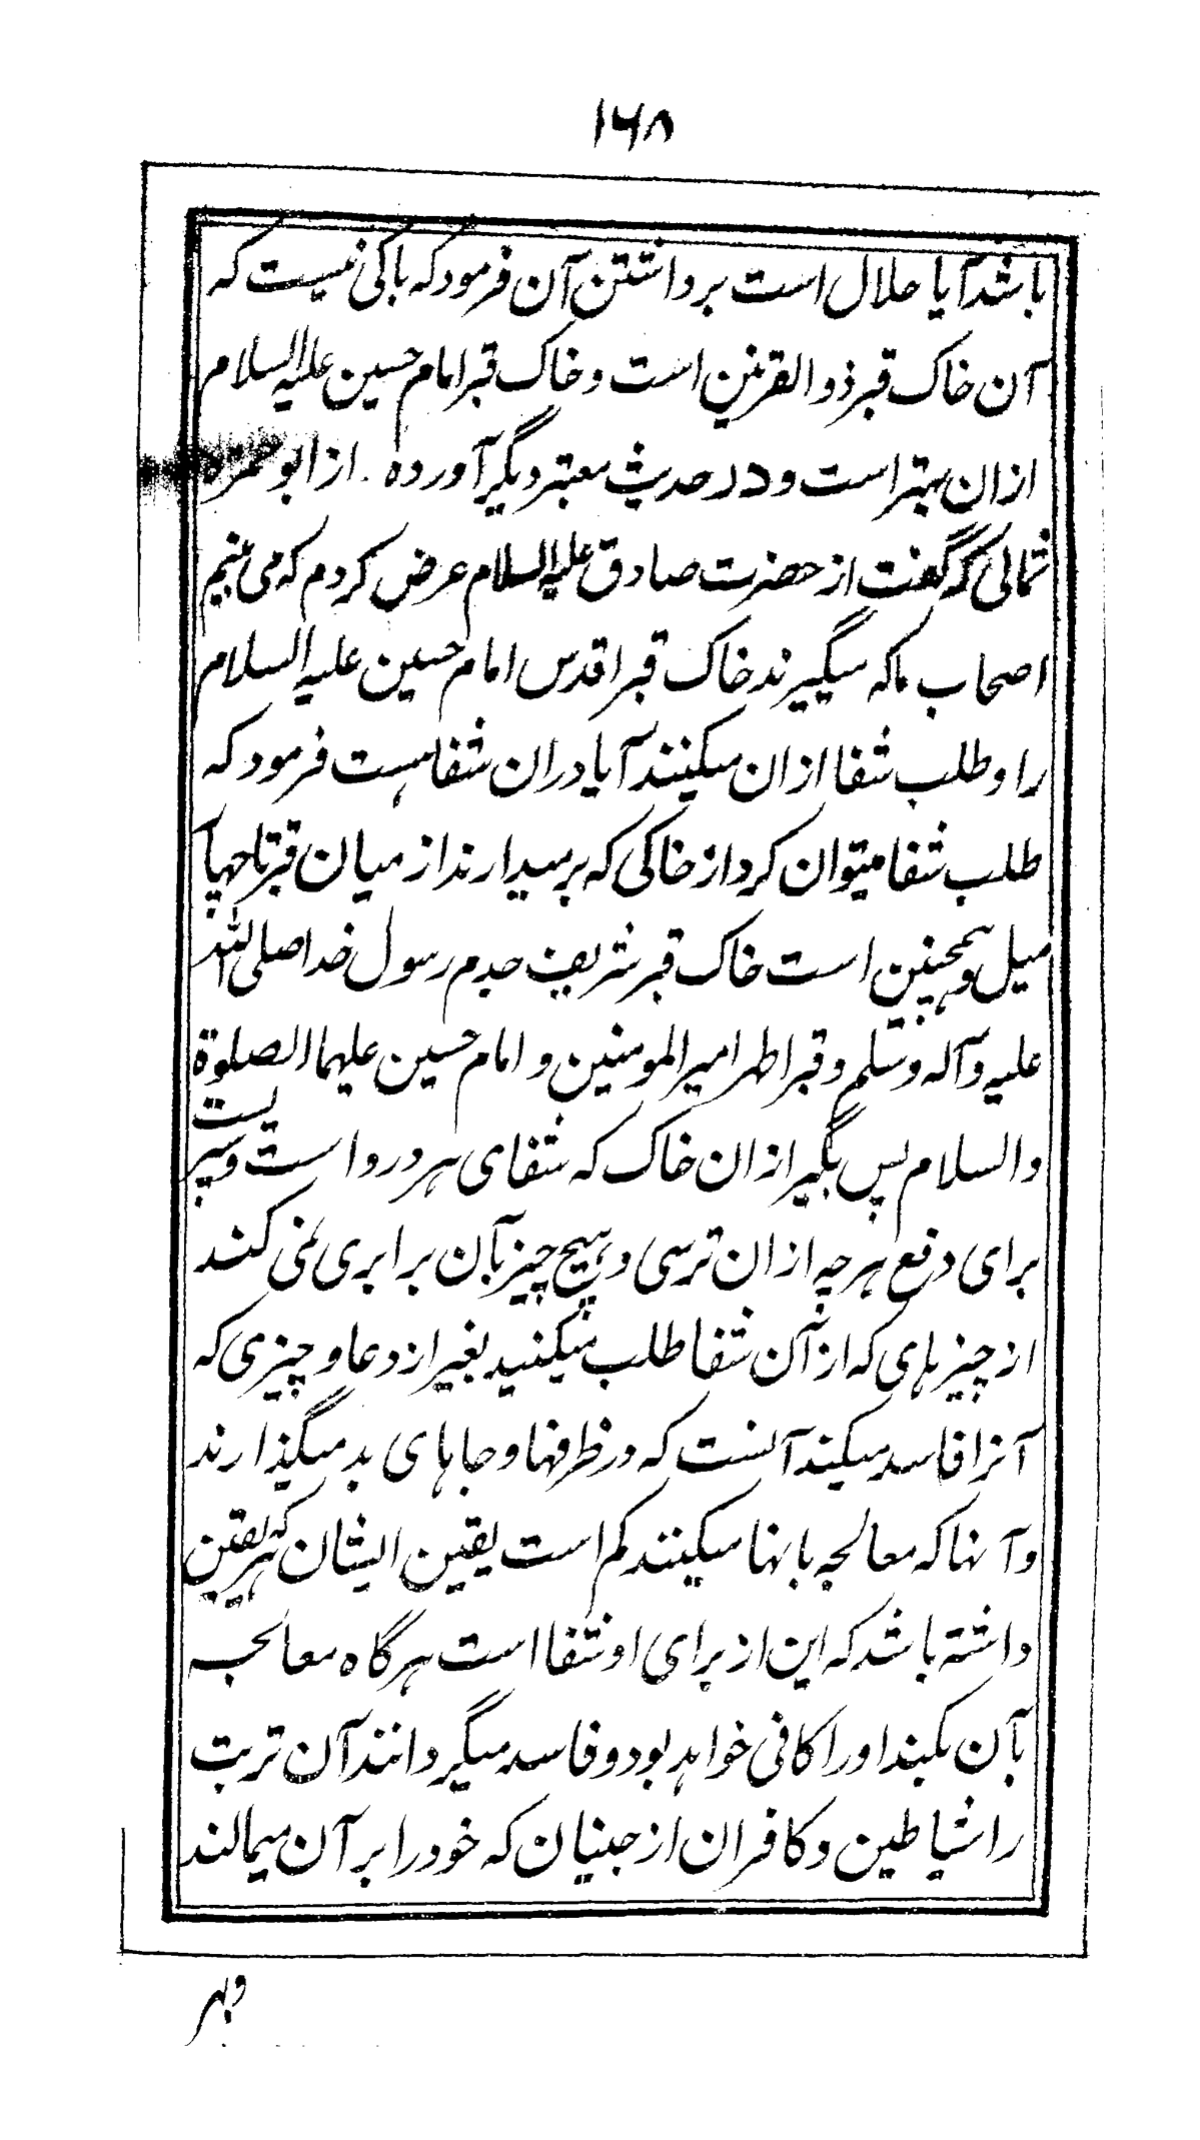 ۱۶۸
باشد آیا حلال است برداشتن آن فرمود که باکی نیست که
آن خاک قبر ذوالقرنین است و خاک قبر امام حسین علیه السلام
ازان بهتر است و در حدیث معتبر دیگر آورده . از ابو حمزه
ثمالی که گفت از حضرت صادق علیه السلام عرض کردم که می بینم
اصحاب ما که میگیرند خاک قبر اقدس امام حسین علیه السلام
را و طلب شفا ازان میکنند آیا دران شفا هست فرمود که
طلب شفا میتوان کرد از خاکی که برمیدارند از میان قبر تا چهار
میل و همچنین است خاک قبر شریف جدم رسول خدا صلی الله
علیه و آله و سلم و قبر اطهر امیر المومنین و امام حسین علیهما الصلوة
والسلام پس بگیر ازان خاک که شفای هر درد است و سپریست
برای دفع هرچه ازان ترسی و هیچ چیز بآن برابری نمی کند
از چیزهای که از آن شفا طلب میکنید بغیر از دعا و چیزی که
آنرا فاسد میکند آنست که در ظرفها و جاهای بد میگذارند
و آنها که معالجه بانها میکنند کم است یقین ایشان که هر یقین
داشته باشد که این از برای او شفا است هرگاه معالجه
بآن بکند اورا کافی خواهد بود و فاسد میگردانند آن تربت
را شیاطین و کافران از جنیان که خود را بر آن میمالند
و بهر